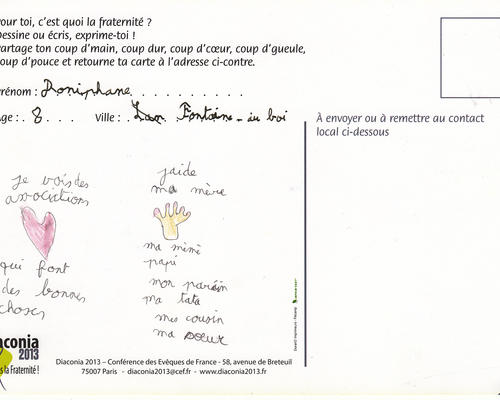 our toi, c'est quoi la fraternité ?
Dessine ou écris, exprime-toi !
artage ton coup d'main, coup dur, coup d'cœur, coup d'gueule,
oup d'pouce et retourne ta carte à l'adresse ci-contre.
rénom : Doniphane
ge : 8 Ville : Fontaine-au boi
À envoyer ou à remettre au contact
local ci-dessous
je vois des
associations
qui font
des bonnes
choses
j'aide
ma mère
ma mémé
papi
mon parain
ma tata
mes cousin
ma soeur
aconia
2013
s la Fraternité !
Diaconia 2013 – Conférence des Evêques de France - 58, avenue de Breteuil
75007 Paris - diaconia2013@cef.fr - www.diaconia2013.fr